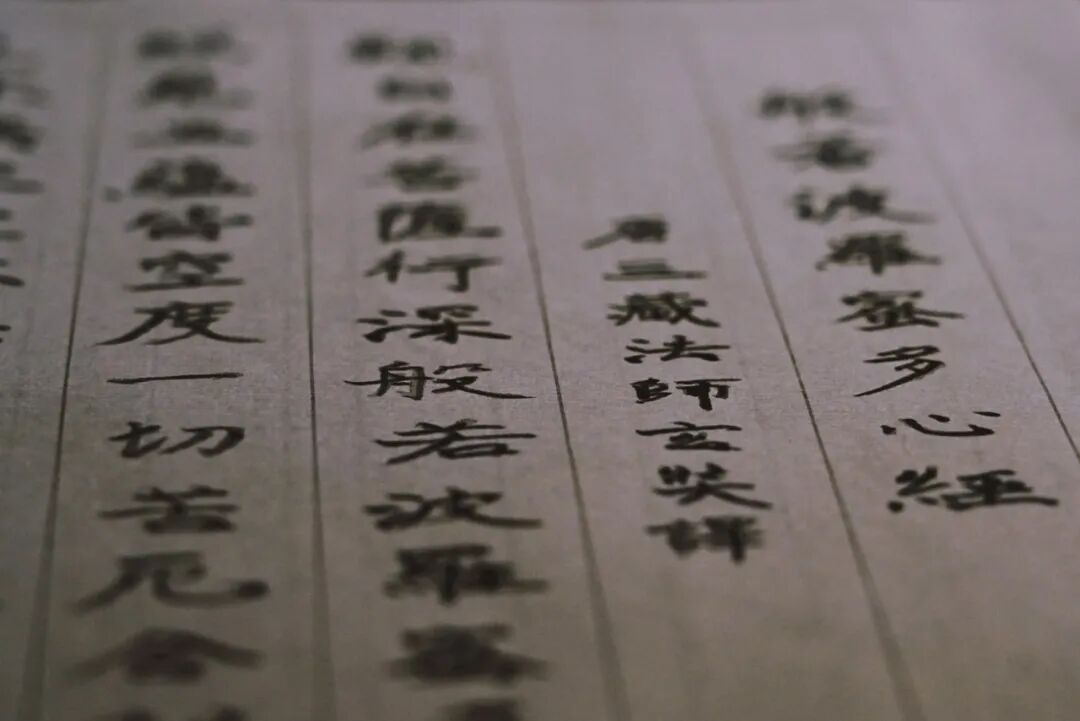 般若波羅蜜多心經
唐三藏法師玄奘譯
觀自在菩薩行深般若波羅蜜
照見五蘊皆空度一切苦厄舍